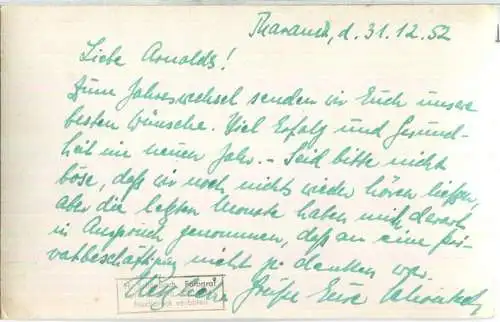 Tharandt, d. 31.12.52
Liebe Arnolds!
Zum Jahreswechsel senden wir Euch unsere
besten Wünsche. Viel Erfolg und Gesund-
heit im neuen Jahr. - Seid bitte nicht
böse, daß wir noch nichts wieder hören ließen,
aber die letzten Monate haben mich derart
in Anspruch genommen, daß an eine Pri-
vatbeschäftigung nicht zu denken war.
Herzliche Grüße Eure
Nachdruck verboten